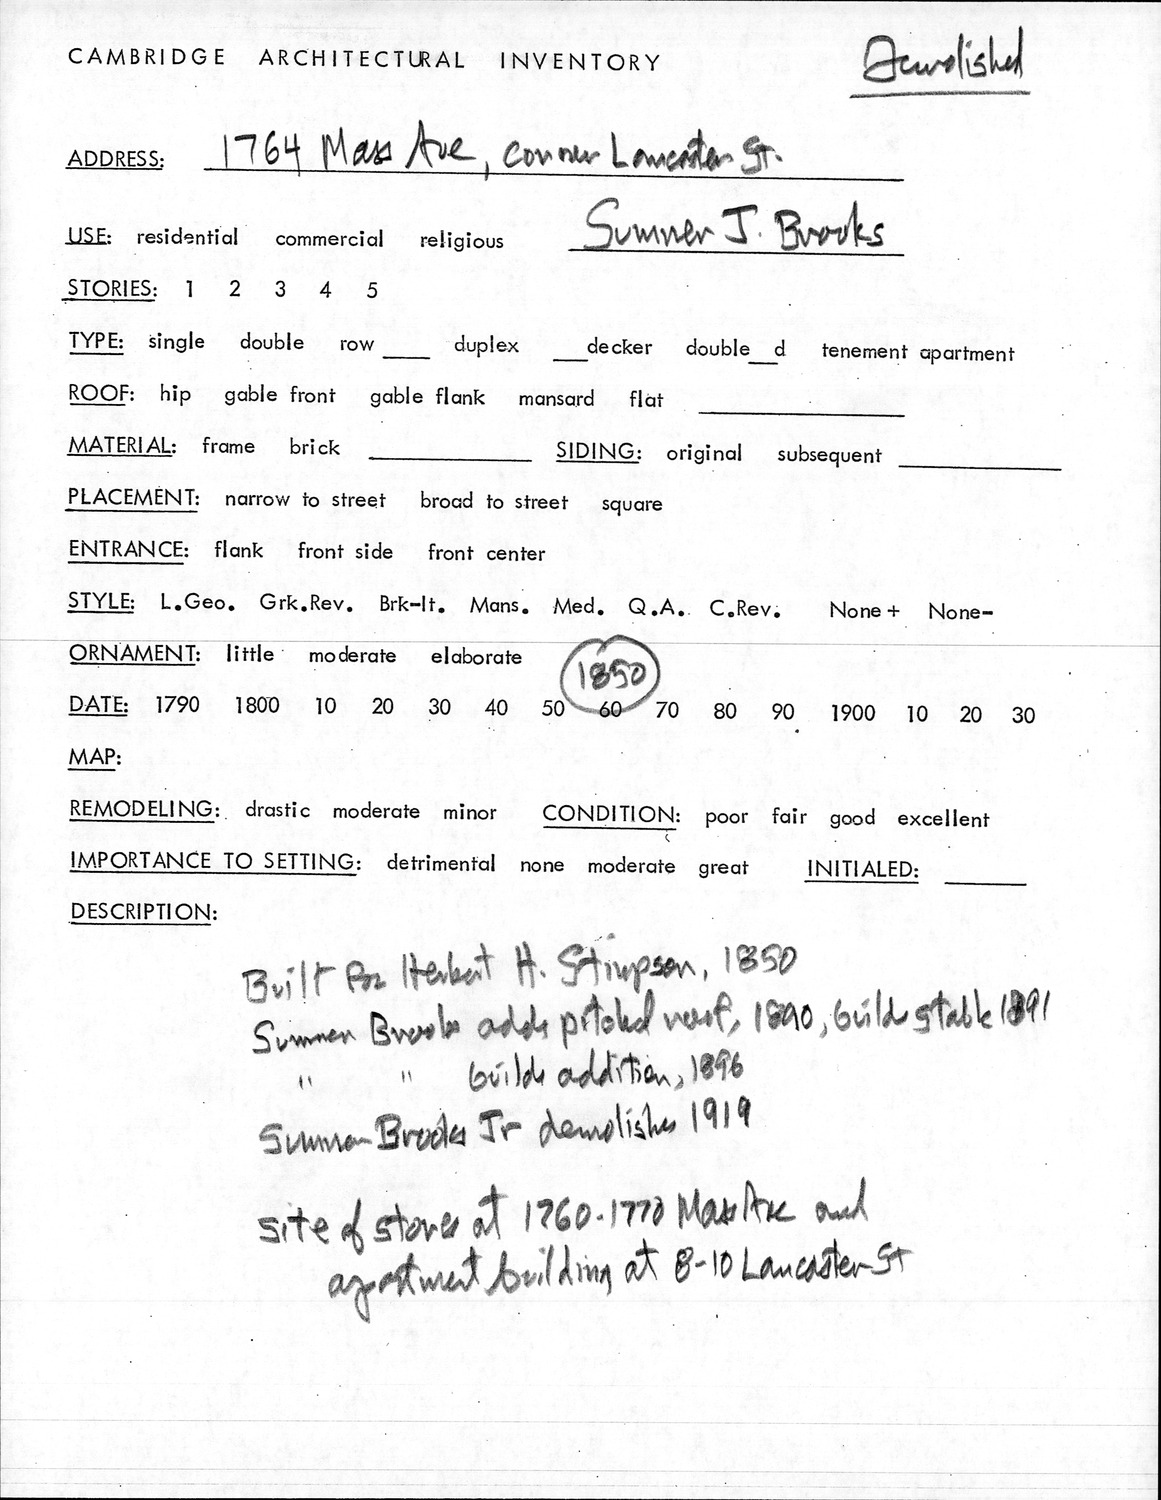 CAMBRIDGE ARCHITECTURAL INVENTORY
Demolished
ADDRESS: 1764 Mass Ave, corner Lancaster St.
Sumner J. Brooks
USE: residential commercial religious
STORIES: 1 2 3 4 5
TYPE: single double row ____ duplex ___decker double__d tenement apartment
ROOF: hip gable front gable flank mansard flat
MATERIAL: frame brick SIDING: original subsequent
PLACEMENT: narrow to street broad to street square
ENTRANCE: flank front side front center
STYLE: L.Geo. Grk.Rev. Brk-It. Mans. Med. Q.A. C.Rev. None+ None-
ORNAMENT: little moderate elaborate
1850
DATE: 1790 1800 10 20 30 40 50 60 70 80 90 1900 10 20 30
MAP:
REMODELING: drastic moderate minor CONDITION: poor fair good excellent
IMPORTANCE TO SETTING: detrimental none moderate great INITIALED:
DESCRIPTION:
Built for Herbert H. Stimpson, 1850
Sumner Brooks adds pitched roof, 1890, builds stable 1891
" " builds addition, 1896
Sumner Brooks Jr demolishes 1919
site of stores at 1760-1770 Mass Ave and
apartment building at 8-10 Lancaster St